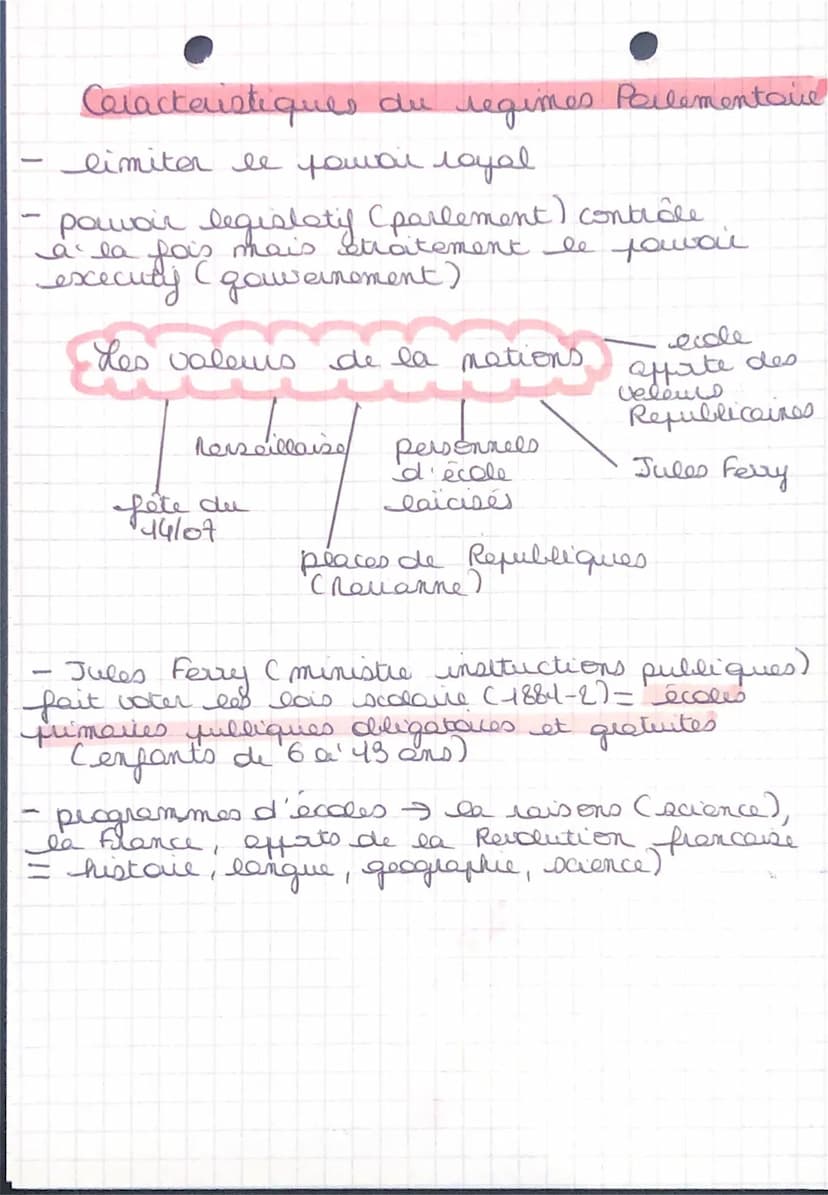 Caracteristiques du regimes Parlementaire
- limiter le pouvoir royal
- pouvoir legislatif (parlement) contrôle
à la fois mais étroitement le pouvoir
executif (gouvernement)
Les valeurs de la nations
école
apporte des
valeurs
Republicaines
Marseillaise
personnels
d'école
laïcisés
Jules Ferry
fête du
14/07
places de Republiques
(Marianne)
- Jules Ferry (ministre insctuctions publiques)
fait voter les lois scolaire (1881-2) = écoles
primaires publiques obligatoires et gratuites
(enfants de 6 à 13 ans)
- programmes d'écoles → la raisons (science),
la France, apports de la Revolution francaise
= histoire, langue, geographie, science)